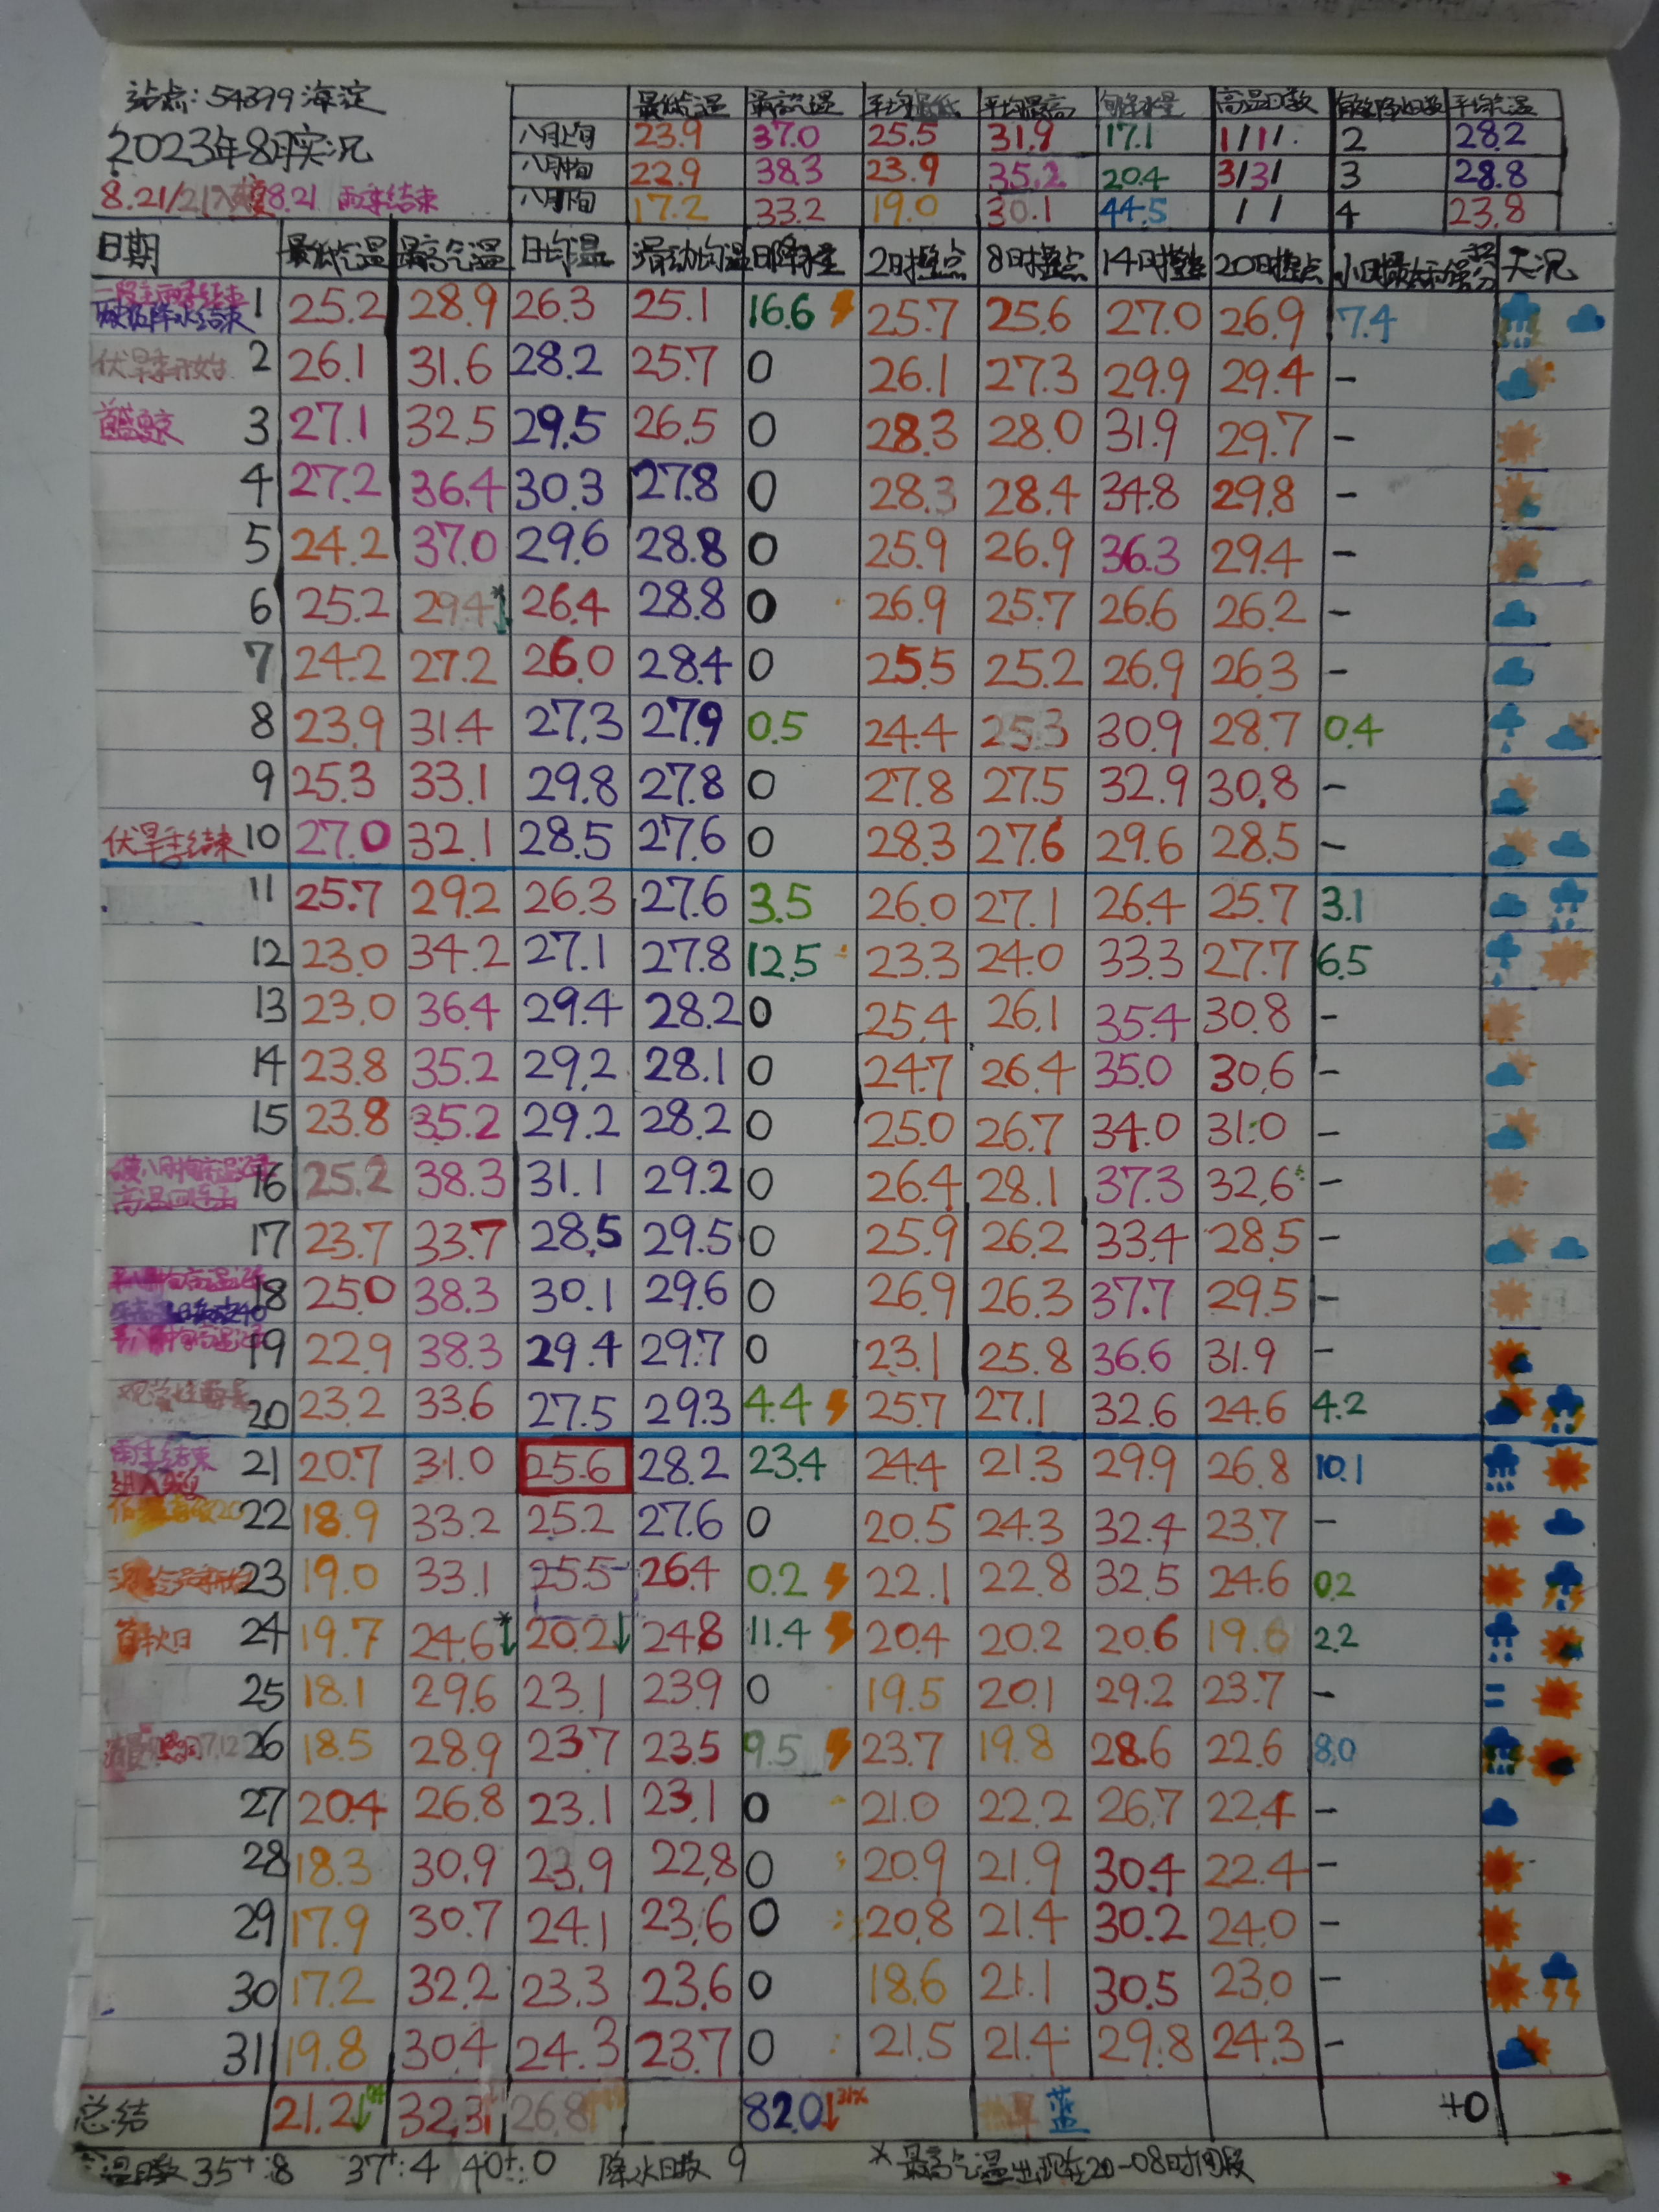 站点:54399海淀
2023年8月实况
8.21/21入 8.21 雨季结束
最低气温 最高气温 平均最低 平均最高 旬降水量 高温日数 有效降水日数 平均气温
八月上旬 23.9 37.0 25.5 31.9 17.1 1/1/ 2 28.2
八月中旬 22.9 38.3 23.9 35.2 20.4 3/3/ 3 28.8
八月下旬 17.2 33.2 19.0 30.1 44.5 / / 4 23.8
日期 最低气温 最高气温 日均温 滑动均温 日降水量 2时整点 8时整点 14时整点 20时整点 小时最大 天况
1 25.2 28.9 26.3 25.1 16.6 25.7 25.6 27.0 26.9 7.4
伏旱季开始 2 26.1 31.6 28.2 25.7 0 26.1 27.3 29.9 29.4 -
3 27.1 32.5 29.5 26.5 0 28.3 28.0 31.9 29.7 -
4 27.2 36.4 30.3 27.8 0 28.3 28.4 34.8 29.8 -
5 24.2 37.0 29.6 28.8 0 25.9 26.9 36.3 29.4 -
6 25.2 29.4*↓ 26.4 28.8 0 26.9 25.7 26.6 26.2 -
7 24.2 27.2 26.0 28.4 0 25.5 25.2 26.9 26.3 -
8 23.9 31.4 27.3 27.9 0.5 24.4 25.3 30.9 28.7 0.4
9 25.3 33.1 29.8 27.8 0 27.8 27.5 32.9 30.8 -
伏旱季结束 10 27.0 32.1 28.5 27.6 0 28.3 27.6 29.6 28.5 -
11 25.7 29.2 26.3 27.6 3.5 26.0 27.1 26.4 25.7 3.1
12 23.0 34.2 27.1 27.8 12.5 23.3 24.0 33.3 27.7 6.5
13 23.0 36.4 29.4 28.2 0 25.4 26.1 35.4 30.8 -
14 23.8 35.2 29.2 28.1 0 24.7 26.4 35.0 30.6 -
15 23.8 35.2 29.2 28.2 0 25.0 26.7 34.0 31.0 -
16 25.2 38.3 31.1 29.2 0 26.4 28.1 37.3 32.6 -
17 23.7 33.7 28.5 29.5 0 25.9 26.2 33.4 28.5 -
18 25.0 38.3 30.1 29.6 0 26.9 26.3 37.7 29.5 -
19 22.9 38.3 29.4 29.7 0 23.1 25.8 36.6 31.9 -
20 23.2 33.6 27.5 29.3 4.4 25.7 27.1 32.6 24.6 4.2
雨季结束 21 20.7 31.0 25.6 28.2 23.4 24.4 21.3 29.9 26.8 10.1
22 18.9 33.2 25.2 27.6 0 20.5 24.3 32.4 23.7 -
23 19.0 33.1 25.5 26.4 0.2 22.1 22.8 32.5 24.6 0.2
首秋日 24 19.7 24.6*↓ 20.2↓ 24.8 11.4 20.4 20.2 20.6 19.8 2.2
25 18.1 29.6 23.1 23.9 0 19.5 20.1 29.2 23.7 -
26 18.5 28.9 23.7 23.5 9.5 23.7 19.8 28.6 22.6 8.0
27 20.4 26.8 23.1 23.1 0 21.0 22.2 26.7 22.4 -
28 18.3 30.9 23.9 22.8 0 20.9 21.9 30.4 22.4 -
29 17.9 30.7 24.1 23.6 0 20.8 21.4 30.2 24.0 -
30 17.2 32.2 23.3 23.6 0 18.6 21.1 30.5 23.0 -
31 19.8 30.4 24.3 23.7 0 21.5 21.4 29.8 24.3 -
总结 21.2↓ 32.3 26.8 82.0↓31% 蓝 +0
高温日数 35+:8 37+:4 40+:0 降水日数 9 *最高气温出现在20-08时间段